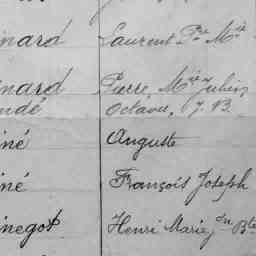 inard Laurent Pre Mie
inard Pierre, Mie Julien
ndé Octave, J. B.
iné Auguste
iné François Joseph
inegot Henri Marie, du Bte